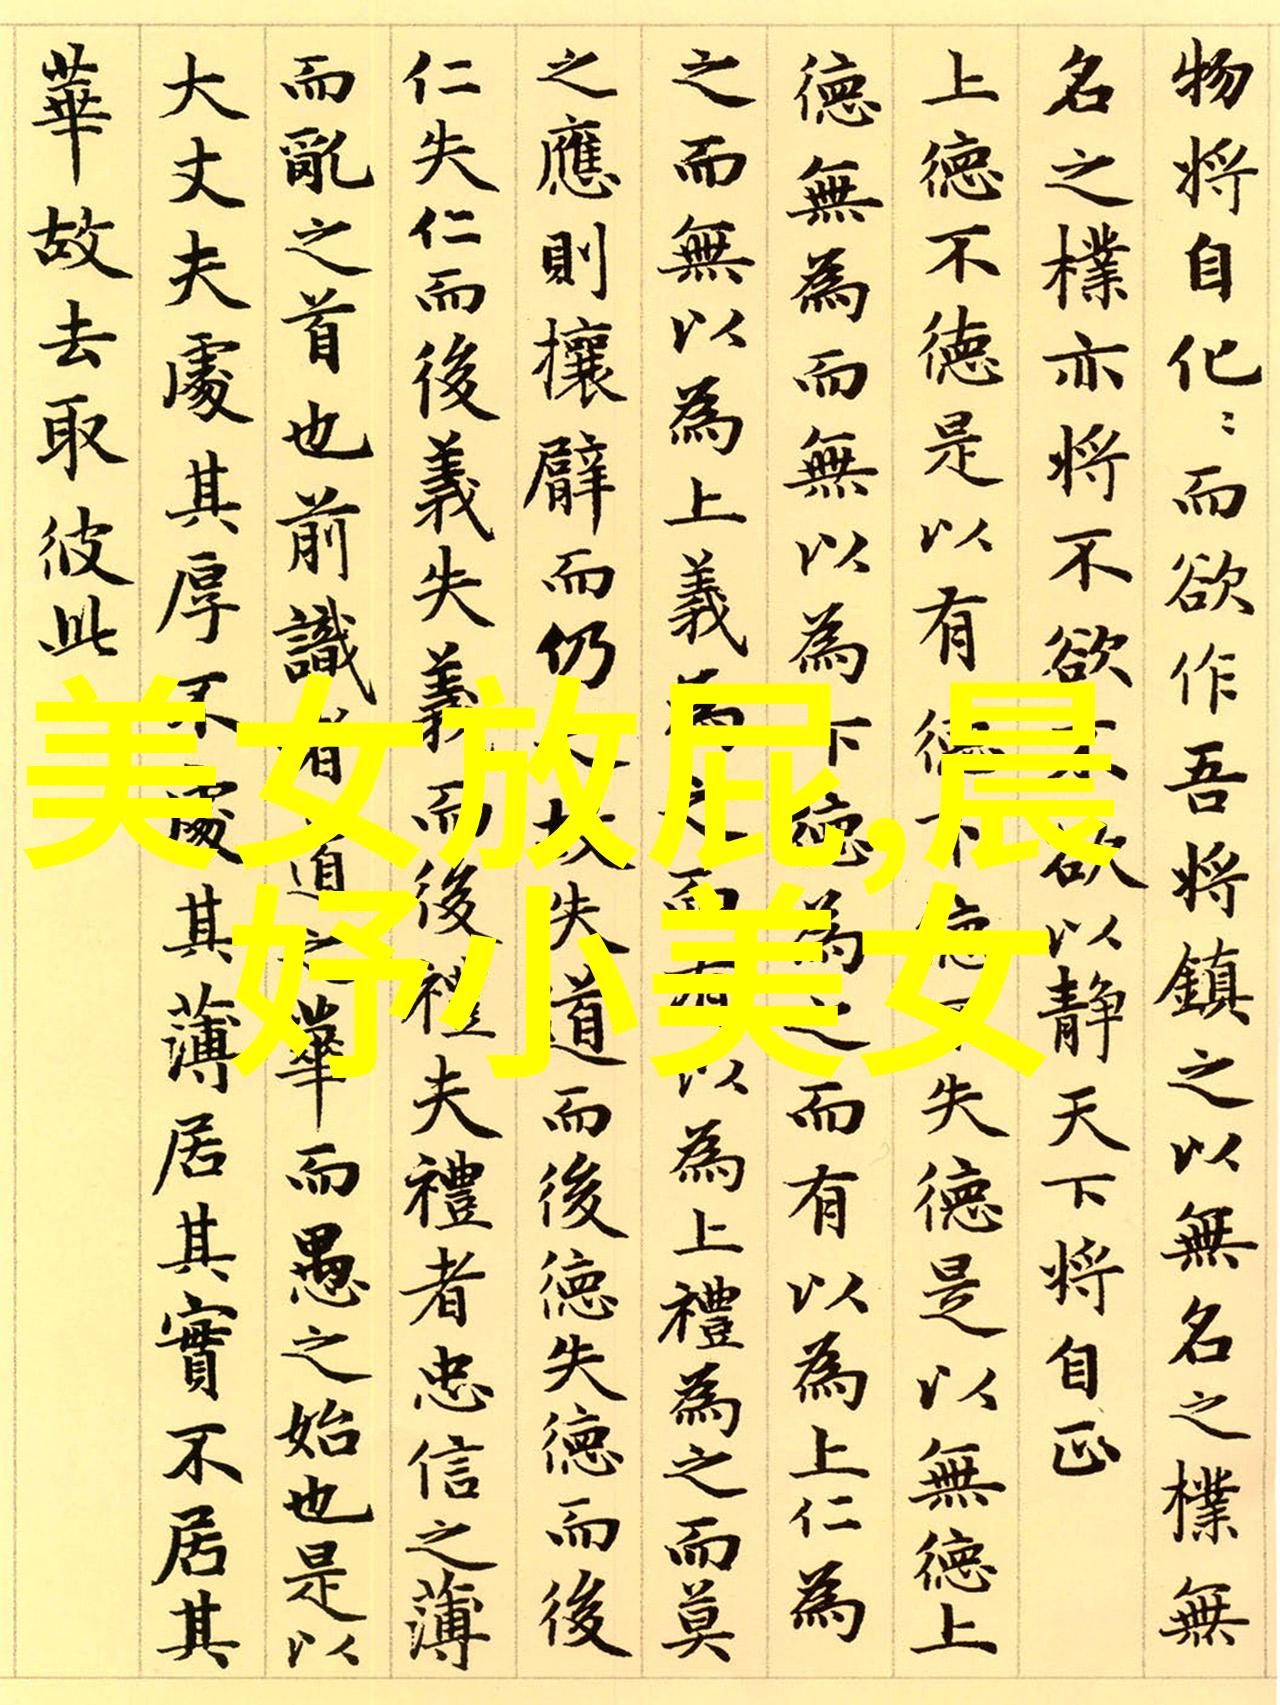 物将自化〻而欲作吾将鎮之以無名之樸無
名之樸亦将不欲不欲以静天下将自正
上徳不徳是以有徳下徳不失徳是以無徳上
徳無為而無以為下徳為之而有以為上仁為
之而無以為上義為之而有以為上禮為之而莫
之應則攘臂而仍之故失道而後徳失徳而後
仁失仁而後義失義而後禮夫禮者忠信之薄
而亂之首也前識者道之華而愚之始也是以
大丈夫處其厚不處其薄居其實不居其
華故去取彼此
美女放屁,晨
妤小美女